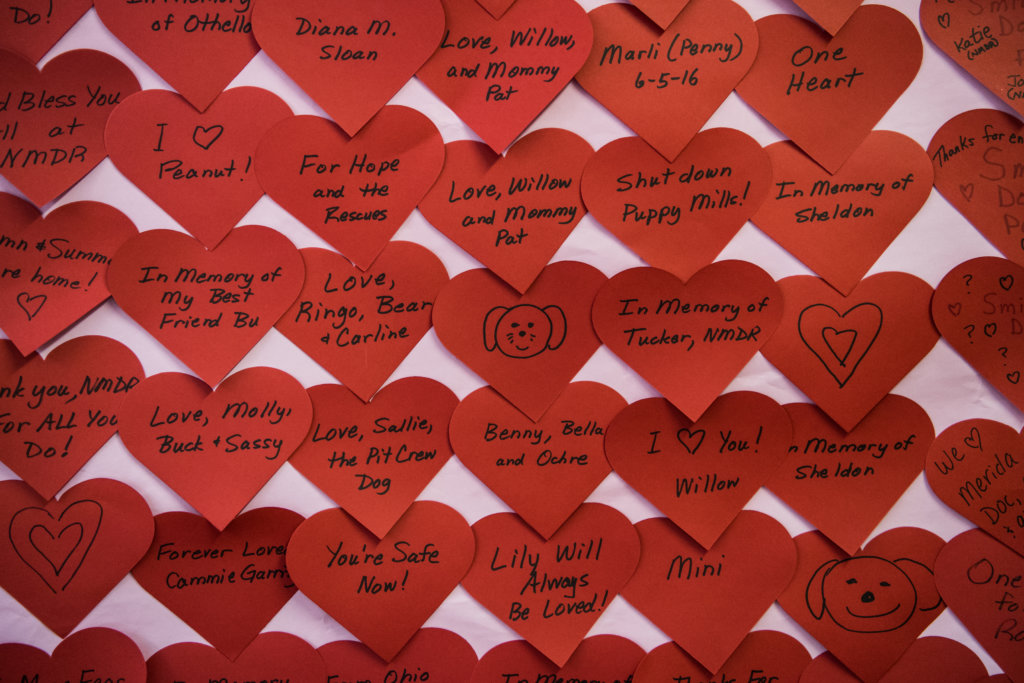 Do!
In Memory
of Othello
Diana M.
Sloan
Love, Willow,
and Mommy
Pat
Marli (Penny)
6-5-16
One
Heart
Katie
(NMDR)
Bless You
at
NMDR
I ♡
Peanut!
For Hope
and the
Rescues
Love, Willow
and Mommy
Pat
Shut down
Puppy Mills!
In Memory of
Sheldon
Thanks for
& Summ
re home!
In Memory of
My Best
Friend Bu
Love,
Ringo, Bear
& Carline
In Memory of
Tucker, NMDR
? ♡
? ♡
?
nk you, NMDR
For ALL You
Do!
Love, Molly,
Buck & Sassy
Love, Sallie,
the Pit Crew
Dog
Benny, Bella
and Ochre
I ♡ You!
Willow
In Memory of
Sheldon
We ♡
Merida
Doc,
Forever Love
Cammie
You're Safe
Now!
Lily Will
Always
Be Loved!
Mini
One
fo
From Ohio
In Memory of
Thanks For